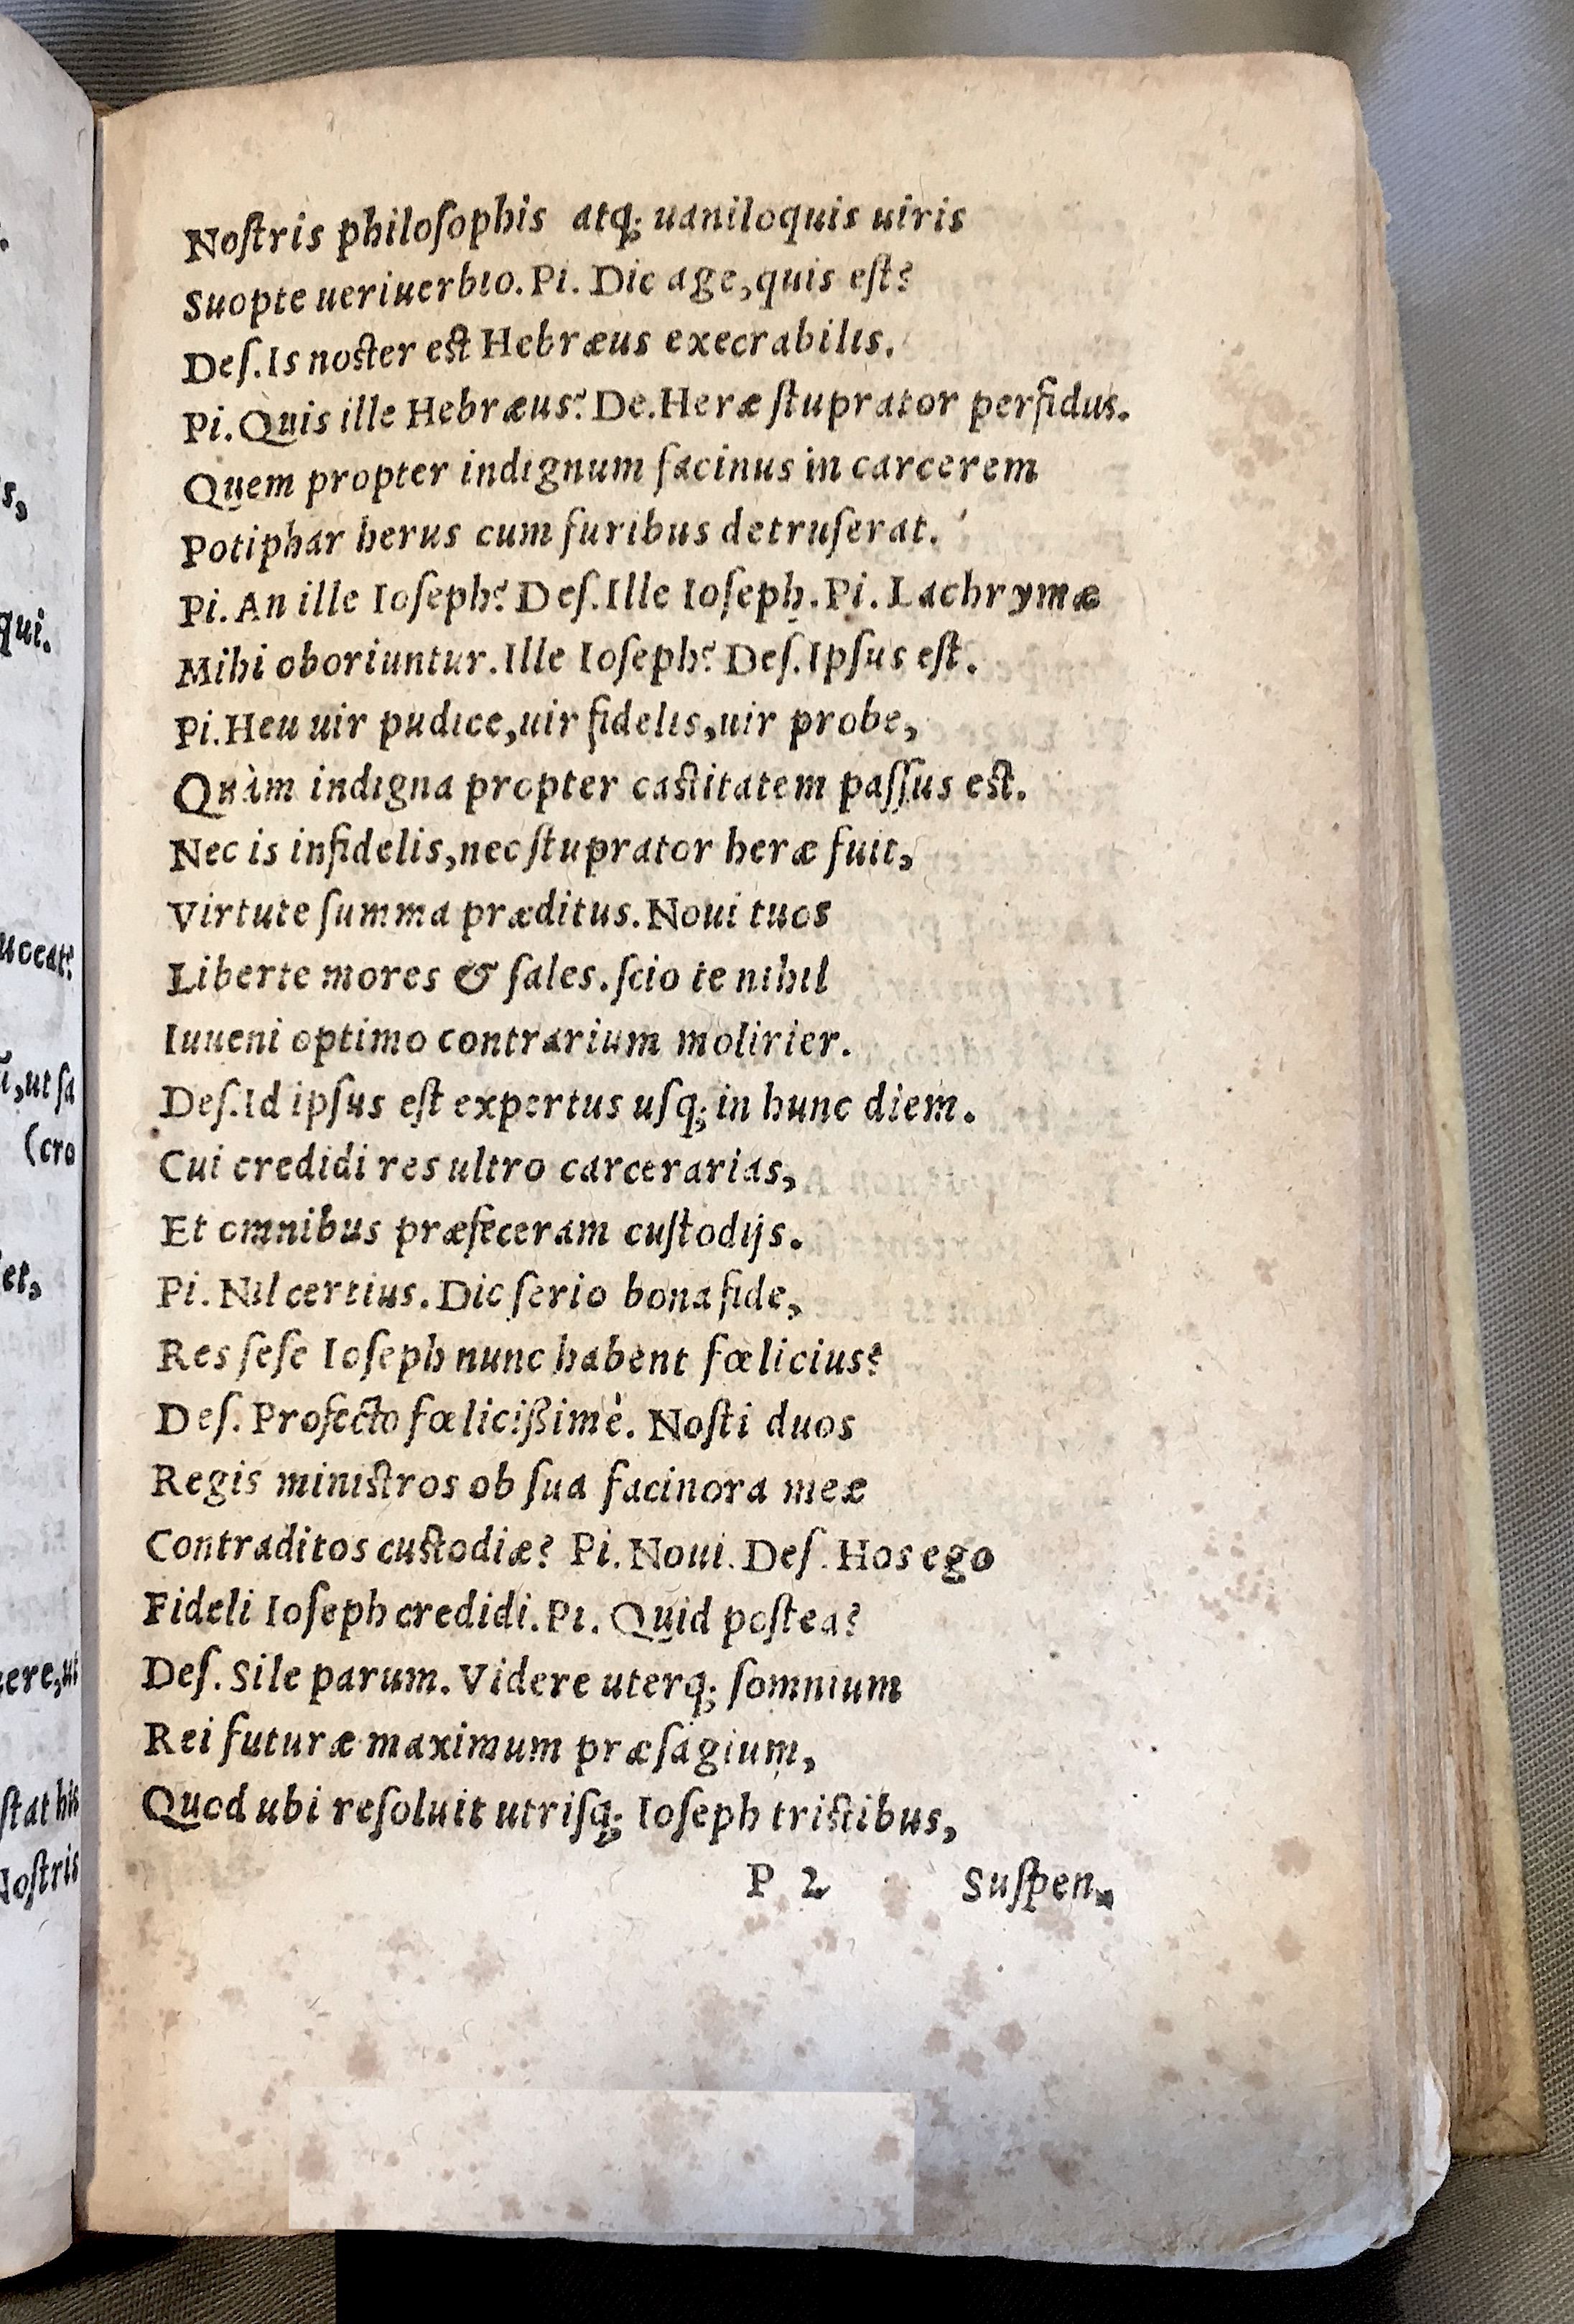 Noſtris philoſophis atq; uaniloquis uiris
Suopte ueriuerbio. Pi. Dic age, quis eſt?
Deſ. Is noſter eſt Hebræus execrabilis.
Pi. Quis ille Hebræus? De. Heræ ſtuprator perfidus.
Quem propter indignum facinus in carcerem
Potiphar herus cum furibus detruſerat.
Pi. An ille Ioſeph? Deſ. Ille Ioſeph. Pi. Lachrymæ
Mihi oboriuntur. Ille Ioſeph? Deſ. Ipſus eſt.
Pi. Heu uir pudice, uir fidelis, uir probe,
Quàm indigna propter caſtitatem paſſus eſt.
Nec is infidelis, nec ſtuprator heræ fuit,
Virtute ſumma præditus. Noui tuos
Liberte mores & ſales. ſcio te nihil
Iuueni optimo contrarium molirier.
Deſ. Id ipſus eſt expertus uſq; in hunc diem.
Cui credidi res ultro carcerarias,
Et omnibus præfeceram cuſtodijs.
Pi. Nil certius. Dic ſerio bona fide,
Res ſeſe Ioſeph nunc habent fœlicius?
Deſ. Profecto fœlicißimè. Noſti duos
Regis miniſtros ob ſua facinora meæ
Contraditos cuſtodiæ? Pi. Noui. Deſ. Hos ego
Fideli Ioſeph credidi. Pi. Quid poſtea?
Deſ. Sile parum. Videre uterq; ſomnium
Rei futuræ maximum præſagium,
Quod ubi reſoluit utriſq; Ioſeph triſtibus,
P 2 Suſpen-
qui.
uoceat?
(cro
ſtat his
Noſtris